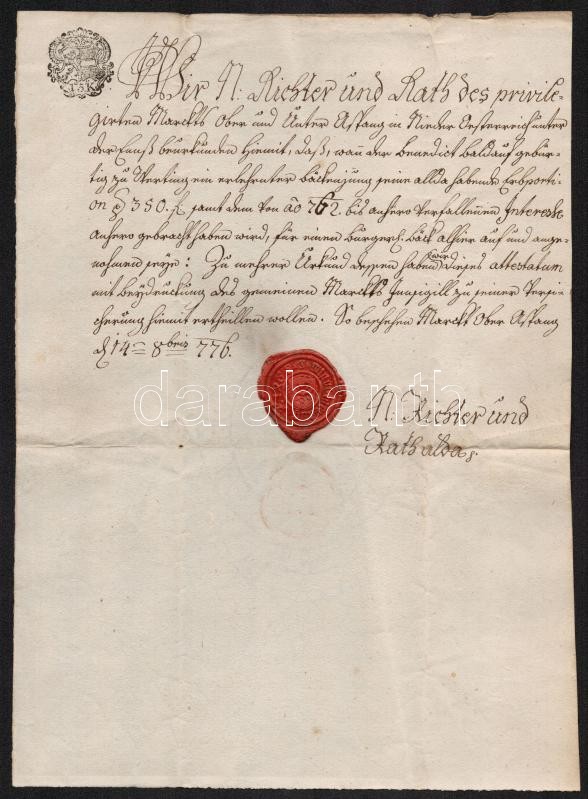 15 K
Wir N. Richter und Rath des privile=
girten Marckts Ober und Unter Aspang in Nieder Oesterreich unter
der Ennß beurkunden hiemit, daß, wan der Benedict Baldauf gebür=
tig zu Kerting ein erlehrnter böckenjung seine allda habende Erbporti=
on p 350. f. samt dem von ao 762. bis anhero verfallenen Interesse
anhero gebracht haben wird, für einen bürgerl. böck alhier auf und ange=
nohmen seye: Zu mehrer Urkund dessen haben wir dieses attestatum
mit beydruckung des gemeinen Marckts Innsigill zu seiner Versi=
cherung hiemit ertheillen wollen. So beschehen Marckt Ober Aspang
d 14= 8bris 776.
N. Richter und
Rath alda
darabanth